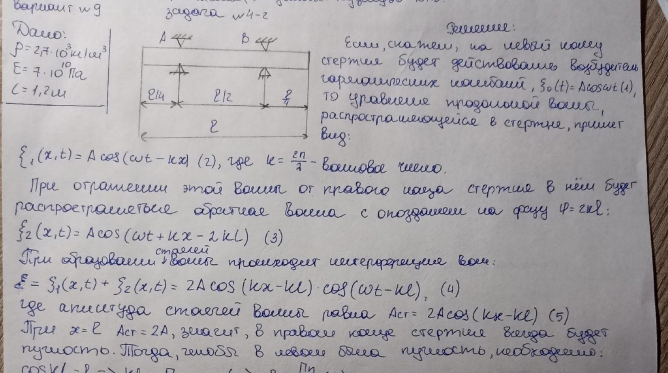 вариант №9
задача №4-2
Дано:
ρ=2,7·10³кг/м³
E=7·10¹⁰Па
l=1,2м
A B
l/4 l/2 l/4
l
Решение:
Если, скажем, на левый конец
стержня будет действовать возбудитель
гармонических колебаний, ξ₀(t)=Acosωt (1),
то уравнение продольной волны,
распространяющейся в стержне, примет
вид:
ξ₁(x,t)=A cos(ωt-kx) (2), где k=2π/λ - волновое число.
При отражении этой волны от правого конца стержня в нём будет
распространяться обратная волна с опозданием на фазу φ=2kl:
ξ₂(x,t)=Acos(ωt+kx-2kl) (3)
При образовании стоячей волны происходит интерференция волн:
ξ=ξ₁(x,t)+ξ₂(x,t)=2Acos(kx-kl)·cos(ωt-kl), (4)
где амплитуда стоячей волны равна Aст=2Acos(kx-kl) (5)
При x=l Aст=2A, значит, в правом конце стержня всегда будет
пучность. Тогда, чтобы в левом была пучность, необходимо: